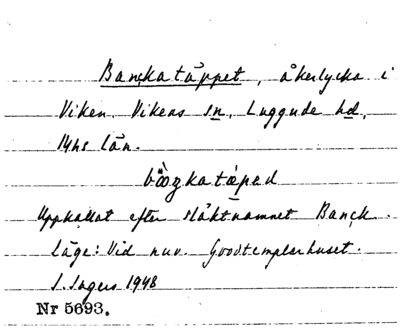 Banckatäppet, åkerlycka i
Viken, Vikens sn, Luggude hd,
Mhs län.
Uppkallat efter släktnamnet Banck.
Läge: Vid nuv. Goodtemplarhuset.
I. Ingers 1948
Nr 5693.